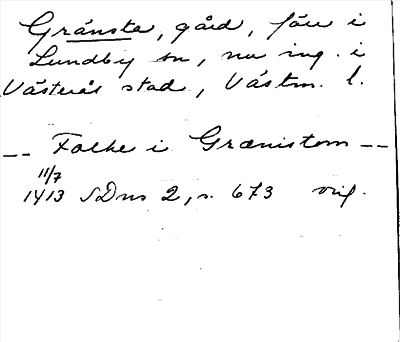 Gränsta, gård, förr i
Lundby sn, nu ing. i
Västerås stad, Västm. l.
-- Folke i Grænistom --
11/7
1413 SDns 2, s. 673 orig.